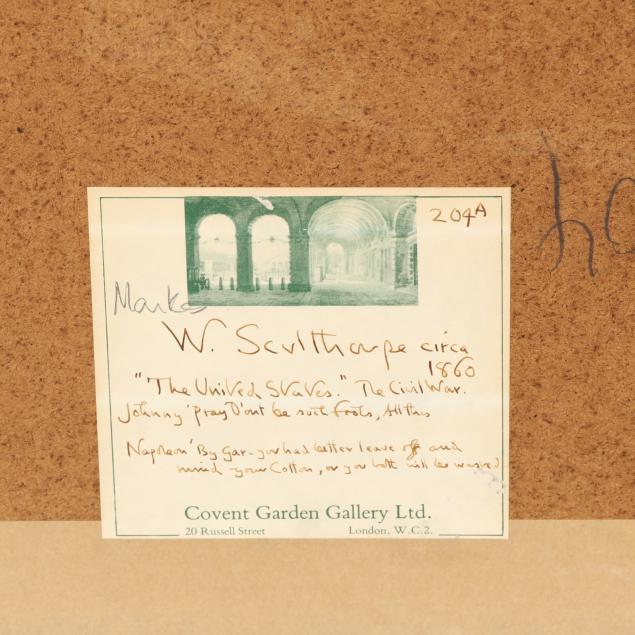 204A
Marks
W. Sculthorpe circa
1860
"The United States." The Civil War.
Johnny 'Pray D'ont be such fools, All this
Napoleon 'By Gar - you had better leave off and
mind your Cotton, or you both will be
Covent Garden Gallery Ltd.
20 Russell Street London, W.C.2.